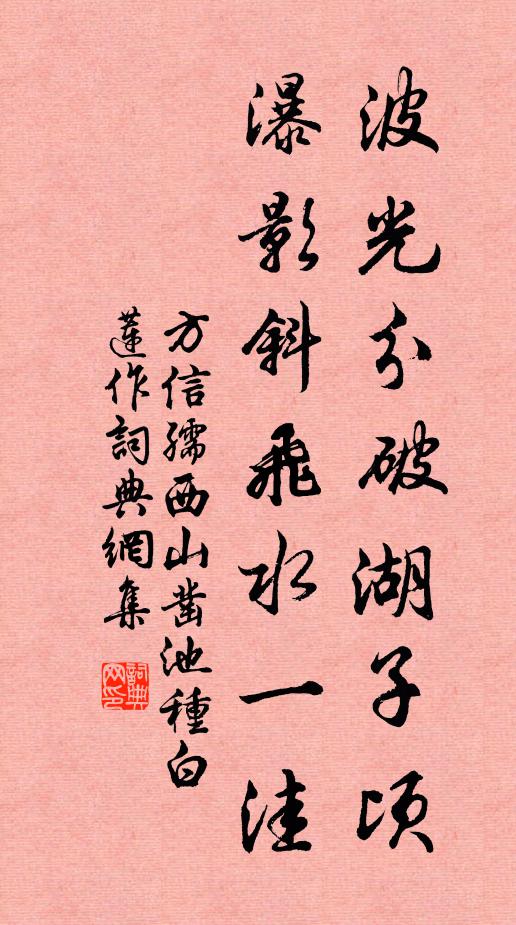 波光分破湖子頃
瀑影斜飛水一洼
方信孺西山凿池種白
蓮作詞典網集
詞典網印